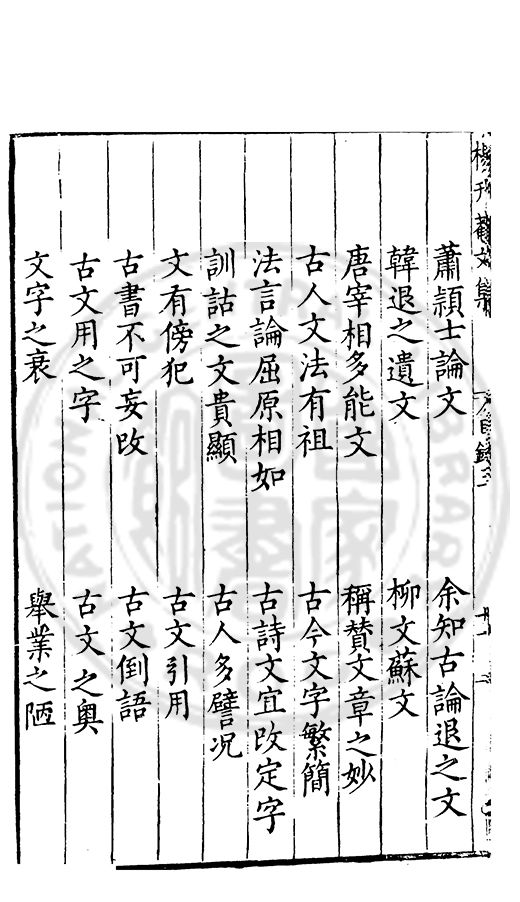 蕭頴士論文　余知古論退之文
韓退之遺文　柳文蘇文
唐宰相多能文　稱賛文章之妙
古人文法有祖　古今文字繁簡
法言論屈原相如　古詩文宜改定字
訓詁之文貴顯　古人多譬况
文有傍犯　古文引用
古書不可妄改　古文倒語
古文用之字　古文之奥
文字之衰　舉業之陋